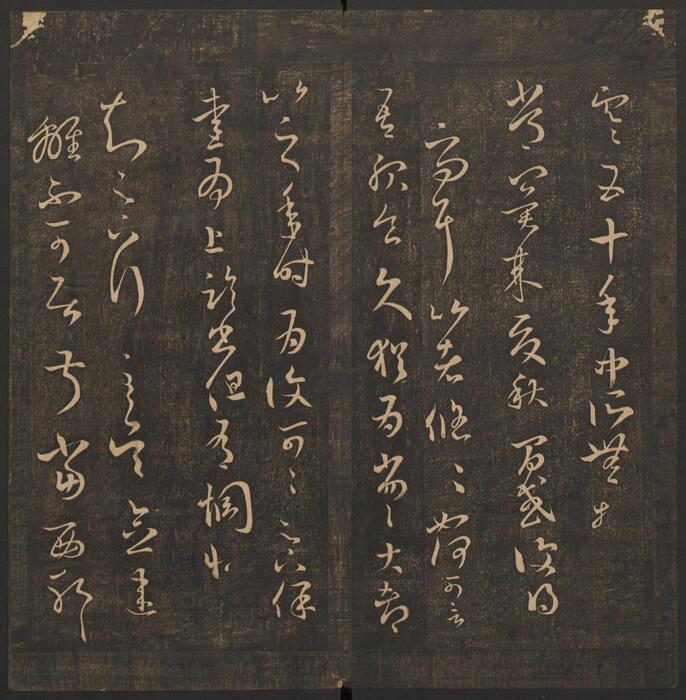 寒五十年中所無
常冀來夏秋間或復得
問耳比者悠悠如何可言
吾服食久猶為劣劣大都
比之年時為復可可足下保
愛為上臨書但有惆悵
知足下行至吳念違
離不可居叔當西耶